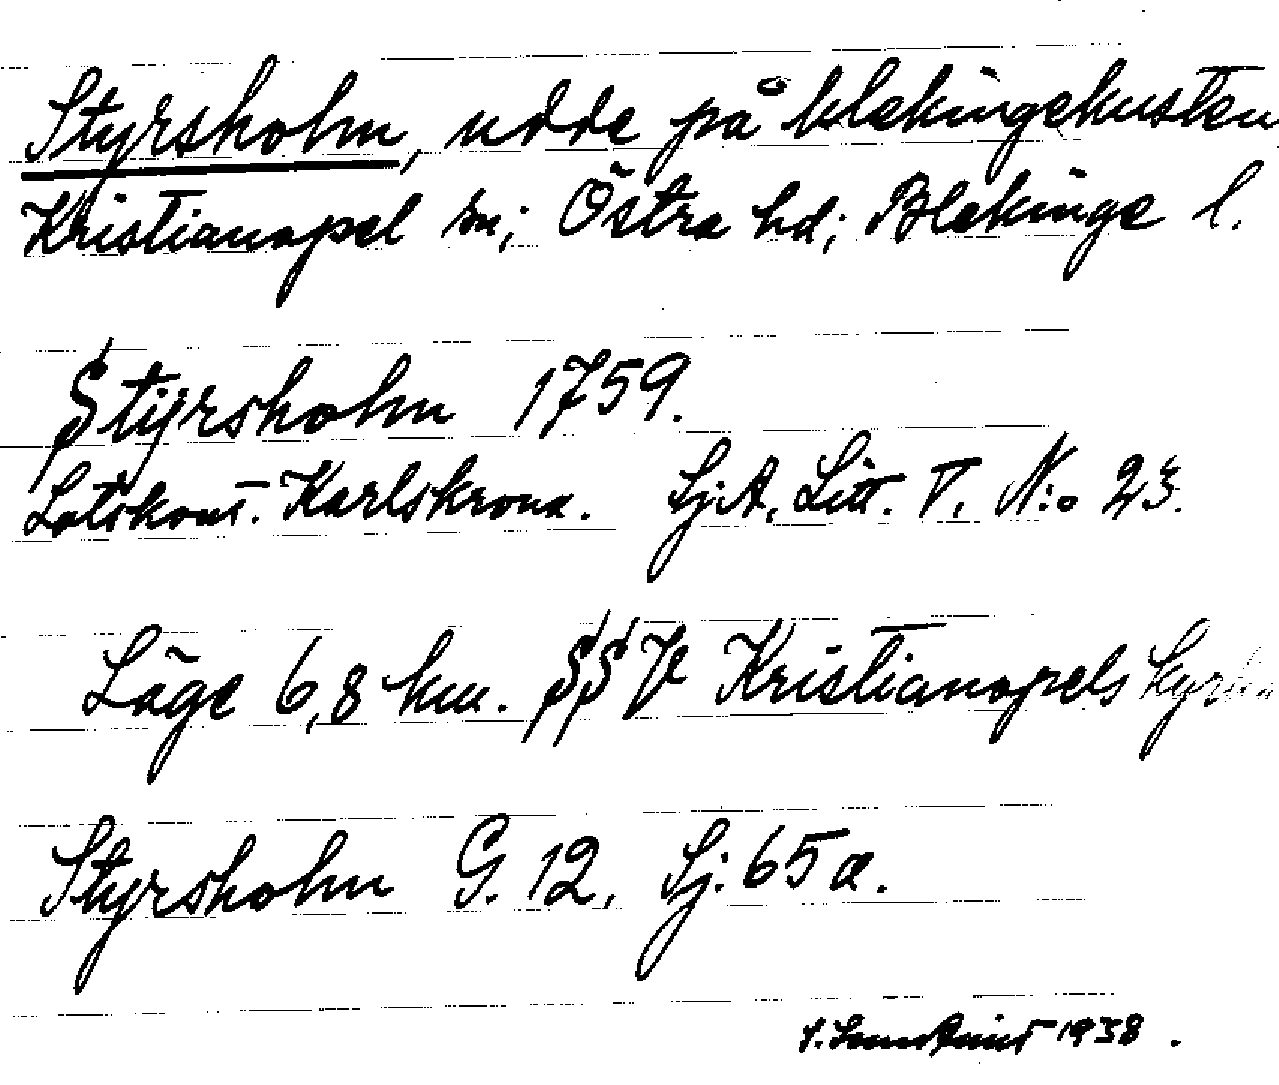 Styrsholm, udde på blekingekusten
Kristianopel sn; Östra hd; Blekinge l.
Styrsholm 1759.
Lotskont. Karlskrona. Sj.A. Litt. V. N:o 23.
Läge 6,8 km. SSV Kristianopels kyrka
Styrsholm G. 12, Sj. 65 a.
1938.